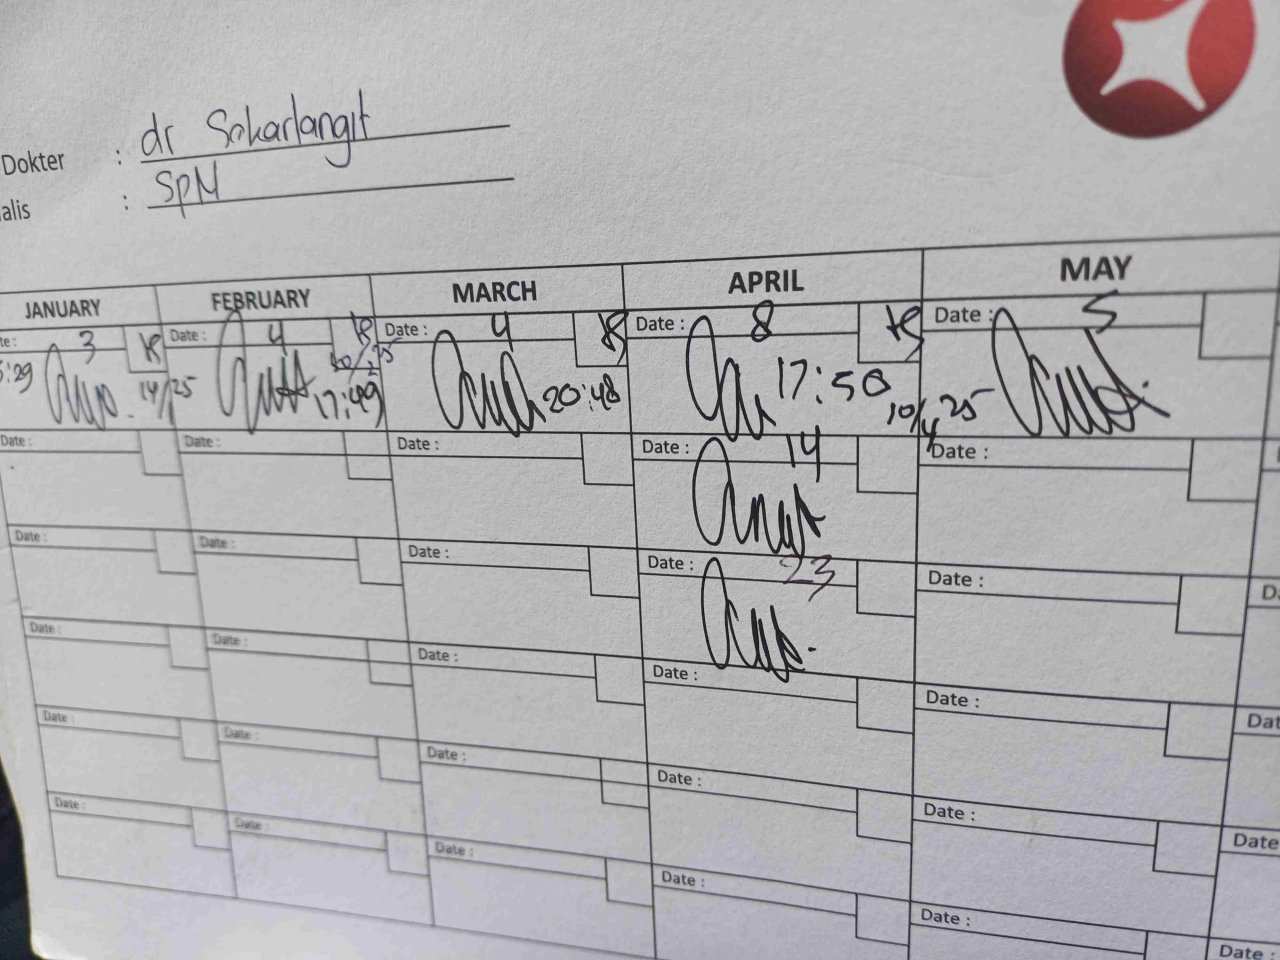 Dokter : dr Sekarlangit
alis : SpM
JANUARY FEBRUARY MARCH APRIL MAY
te: 3 Date : 4 Date : 4 Date : 8 Date : 5
:29 14/1 25 17:49 20:48 17:50 10/4 25
Date : Date : Date : Date : 14 Date :
Date : Date : Date : Date : 23 Date : Da
Date : Date : Date : Date : Date : Dat
Date : Date : Date : Date : Date : Date
Date : Date : Date : Date : Date : Date :